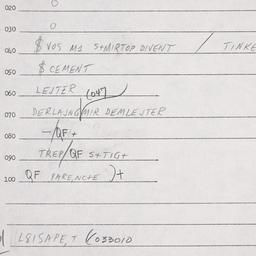 020 0
030 0
040 $ VOS M1 S+MIRTOP DIVENT / TINKE
050 $ CEMENT
060 LEJTER (047
070 DERLAJNG/MIR DEMLEJTER
080 -/QF+
090 TREP/QF S+TIG+
100 QF PARE,NC+E )+
L8ISAPE,T 033010